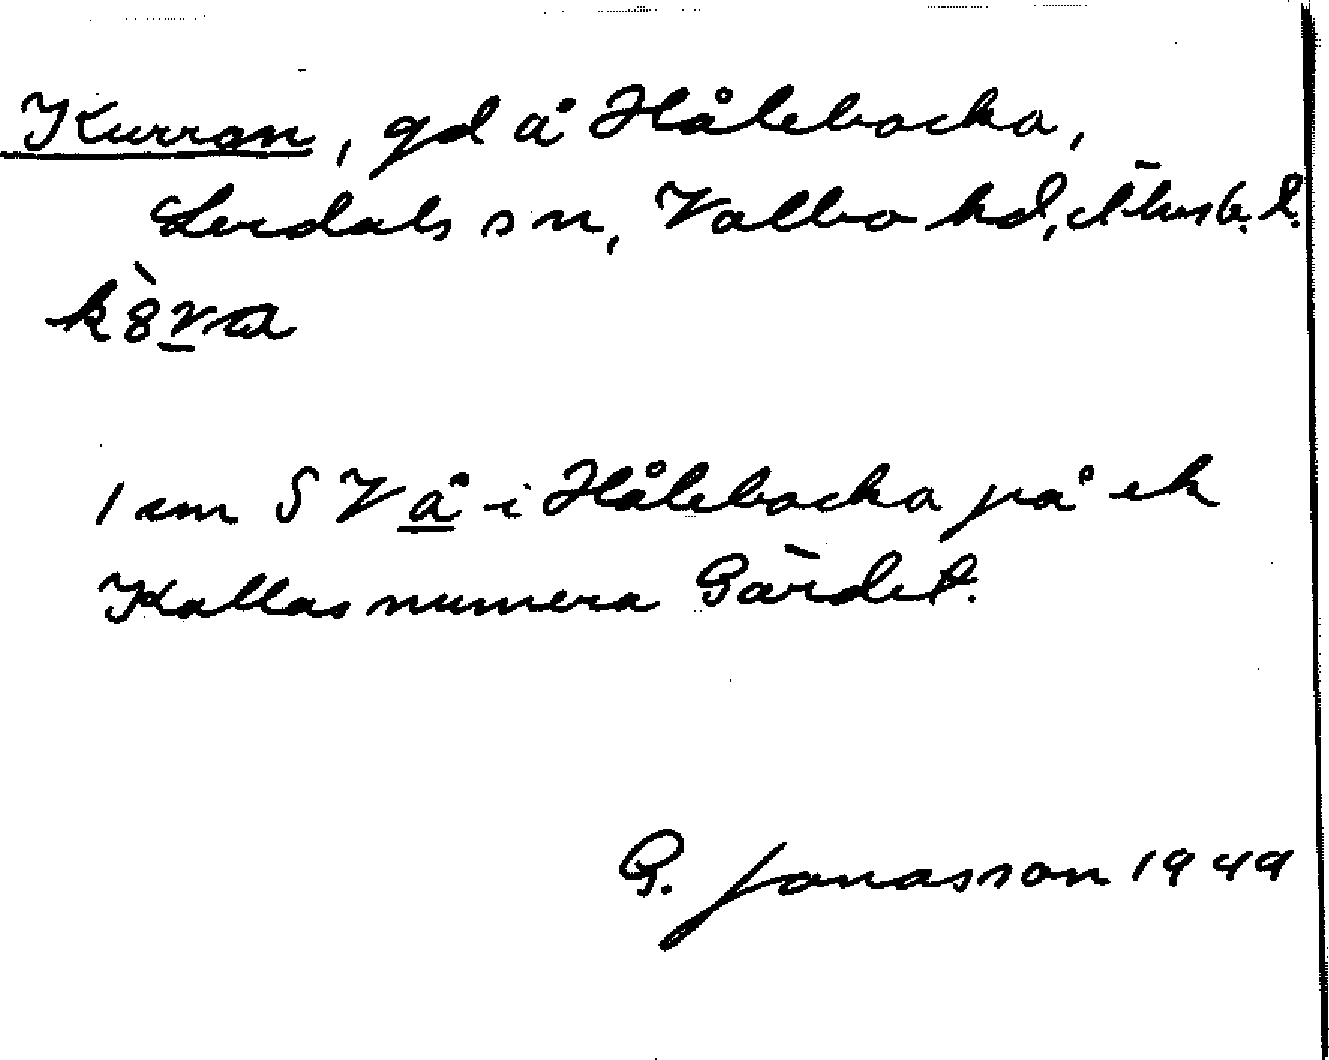 Kurran, gd å Hålebacka,
Lerdals sn, Valbo hd, Älvsb. l.
kȣ̀ra
1 cm SV å i Hålebacka på ek
Kallas numera Gärdet.
G. Jonasson 1949